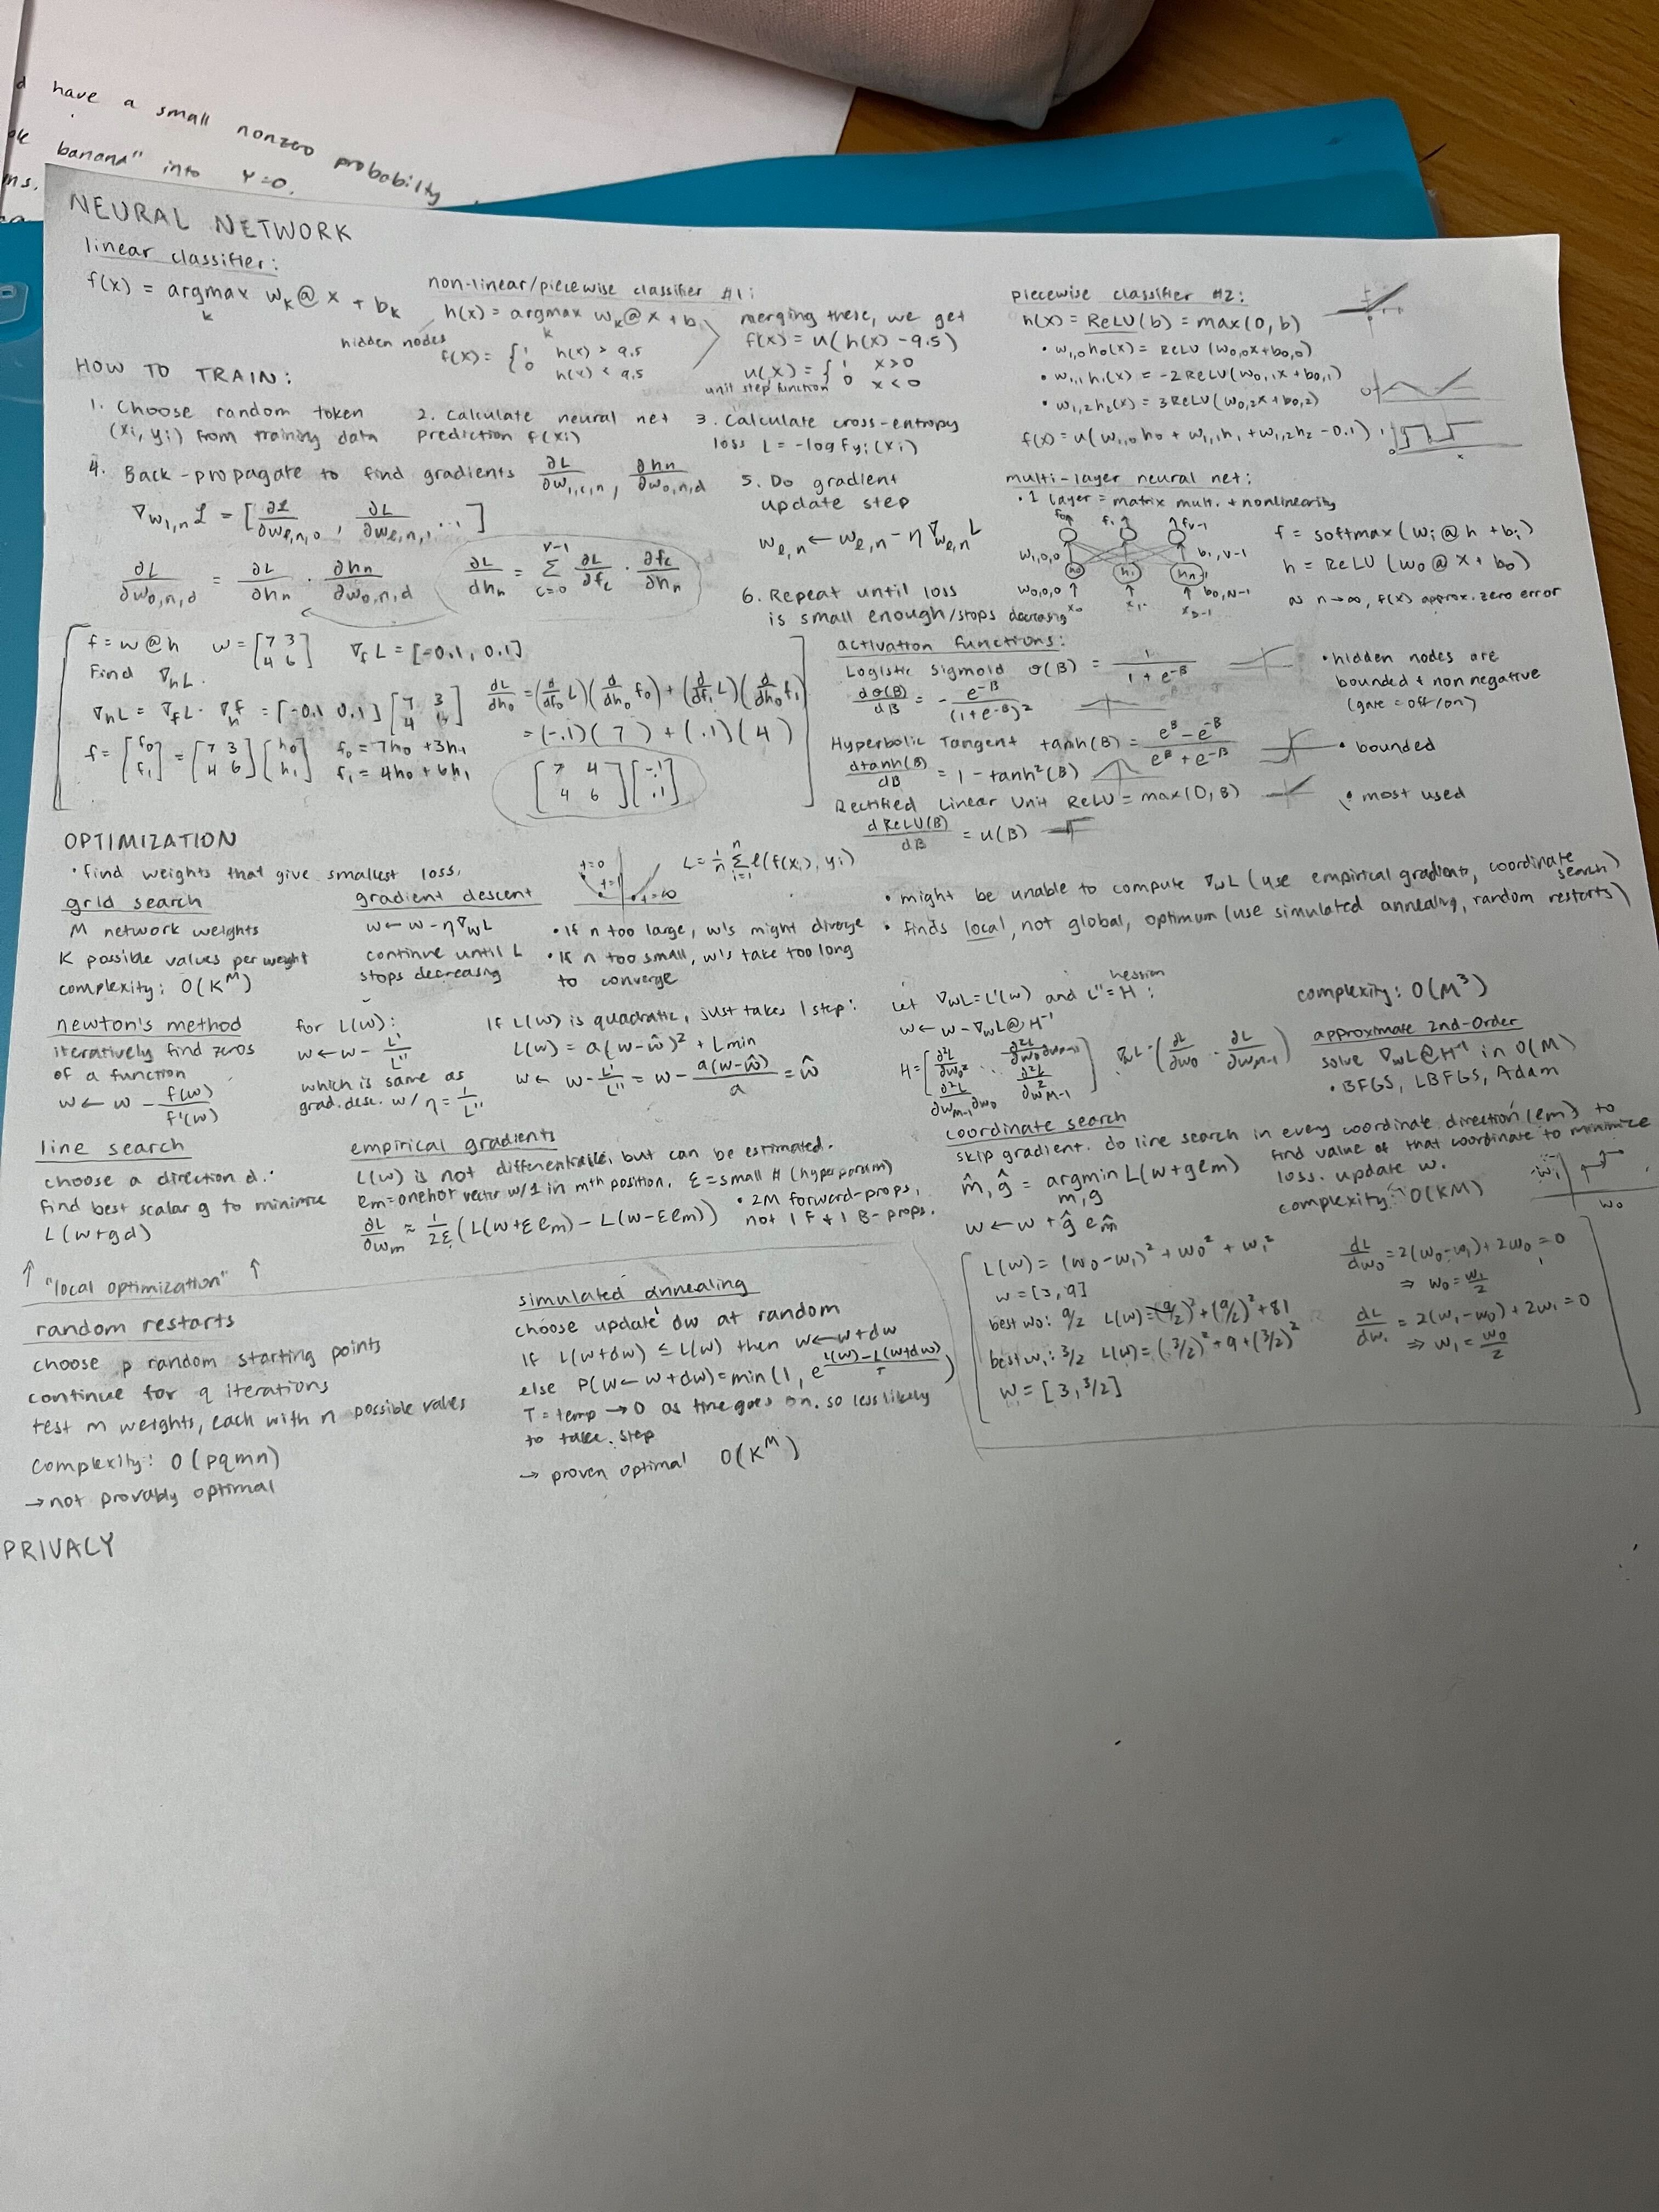 d have a small nonzero probability
banana" into Y=0.
ms.
NEURAL NETWORK
linear classifier:
f(x) = argmax w_k @ x + b_k
k
non-linear/piecewise classifier #1:
h(x) = argmax w_k @ x + b
k
hidden nodes
f(x) = { 1 h(x) > 9.5
0 h(x) < 9.5
merging these, we get
f(x) = u(h(x) - 9.5)
u(x) = { 1 x>0
0 x<0
unit step function
piecewise classifier #2:
h(x) = ReLU(b) = max(0, b)
• w_1,0 h_0(x) = ReLU(w_0,0 x + b_0,0)
• w_1,1 h_1(x) = -2 ReLU(w_0,1 x + b_0,1)
• w_1,2 h_2(x) = 3 ReLU(w_0,2 x + b_0,2)
f(x) = u(w_1,0 h_0 + w_1,1 h_1 + w_1,2 h_2 - 0.1)
HOW TO TRAIN:
1. Choose random token
(x_i, y_i) from training data
2. Calculate neural net
prediction f(x_i)
3. Calculate cross-entropy
loss L = -log f_{y_i}(x_i)
4. Back-propagate to find gradients ∂L/∂w_1,c,n , ∂h_n/∂w_0,n,d
∇w_1,n L = [∂L/∂w_l,n,0 , ∂L/∂w_l,n,1 , ...]
∂L/∂w_0,n,d = ∂L/∂h_n · ∂h_n/∂w_0,n,d
∂L/dh_n = Σ_{c=0}^{V-1} ∂L/∂f_c · ∂f_c/∂h_n
5. Do gradient
update step
w_l,n ← w_l,n - η ∇w_l,n L
6. Repeat until loss
is small enough/stops decreasing
multi-layer neural net:
• 1 layer = matrix mult. + nonlinearity
f_0 f_1 f_V-1
w_1,0,0 b_1,V-1
h_0 h_1 h_N-1
w_0,0,0 b_0,N-1
x_0 x_1 x_D-1
f = softmax(w_1 @ h + b_1)
h = ReLU(w_0 @ x + b_0)
as n→∞, f(x) approx. zero error
f = w @ h w = [7 3
4 6] ∇_f L = [-0.1, 0.1]
Find ∇_h L.
∇_h L = ∇_f L · ∇_h f = [-0.1 0.1] [7 3
4 6]
f = [f_0
f_1] = [7 3
4 6] [h_0
h_1] f_0 = 7h_0 + 3h_1
f_1 = 4h_0 + 6h_1
dL/dh_0 = (d/df_0 L)(d/dh_0 f_0) + (d/df_1 L)(d/dh_0 f_1)
= (-.1)(7) + (.1)(4)
[7 4
4 6] [-.1
.1]
activation functions:
Logistic Sigmoid σ(β) = 1/(1 + e^-β)
dσ(β)/dβ = - e^-β/(1+e^-β)^2
• hidden nodes are
bounded + non negative
(gate = off/on)
Hyperbolic Tangent tanh(β) = (e^β - e^-β)/(e^β + e^-β)
• bounded
dtanh(β)/dβ = 1 - tanh²(β)
Rectified Linear Unit ReLU = max(0, β)
• most used
dReLU(β)/dβ = u(β)
OPTIMIZATION
• find weights that give smallest loss.
t=0
t=1
t=∞
L = 1/n Σ_{i=1}^n ℓ(f(x_i), y_i)
grid search
M network weights
K possible values per weight
complexity: O(K^M)
gradient descent
w ← w - η ∇_w L
continue until L
stops decreasing
• If n too large, w's might diverge
• If n too small, w's take too long
to converge
• might be unable to compute ∇_w L (use empirical gradients, coordinate search)
• finds local, not global, optimum (use simulated annealing, random restarts)
newton's method
iteratively find zeros
of a function
w ← w - f(w)/f'(w)
for L(w):
w ← w - L'/L''
which is same as
grad. desc. w/ η = 1/L''
If L(w) is quadratic, just takes 1 step:
L(w) = a(w-ŵ)² + Lmin
w ← w - L'/L'' = w - a(w-ŵ)/a = ŵ
Let ∇_w L = L'(w) and L'' = H:
hession
w ← w - ∇_w L @ H^-1
H = [∂²L/∂w_0² ... ∂²L/∂w_0∂w_M-1
∂²L/∂w_M-1∂w_0 ∂²L/∂²w_M-1] ∇_w L = (∂L/∂w_0 ... ∂L/∂w_M-1)
complexity: O(M³)
approximate 2nd-Order
solve ∇_w L @ H^-1 in O(M)
• BFGS, LBFGS, Adam
line search
choose a direction d.
find best scalar g to minimize
L(w+gd)
empirical gradients
L(w) is not differentiable, but can be estimated.
e_m = onehot vector w/1 in mth position, ε = small # (hyperparam)
∂L/∂w_m ≈ 1/2ε (L(w+εe_m) - L(w-εe_m))
• 2M forward-props,
not 1 F + 1 B-props.
coordinate search
skip gradient. do line search in every coordinate direction (e_m) to
find value of that coordinate to minimize
loss. update w.
m̂, ĝ = argmin L(w+ge_m)
m,g
w ← w + ĝ e_m̂
complexity: O(KM)
w_1
w_0
↑ "local optimization" ↑
random restarts
choose p random starting points
continue for q iterations
test m weights, each with n possible values
complexity: O(pqmn)
→ not provably optimal
simulated annealing
choose update dw at random
If L(w+dw) ≤ L(w) then w ← w+dw
else P(w ← w+dw) = min(1, e^((L(w)-L(w+dw))/T))
T = temp → 0 as time goes on. so less likely
to take step
→ proven optimal O(K^M)
L(w) = (w_0-w_1)² + w_0² + w_1²
w = [3, 9]
best w_0: 9/2 L(w) = (9/2)² + (9/2)² + 81
best w_1: 3/2 L(w) = (3/2)² + 9 + (3/2)²
w = [3, 3/2]
dL/dw_0 = 2(w_0-w_1) + 2w_0 = 0
⇒ w_0 = w_1/2
dL/dw_1 = 2(w_1-w_0) + 2w_1 = 0
⇒ w_1 = w_0/2
PRIVACY